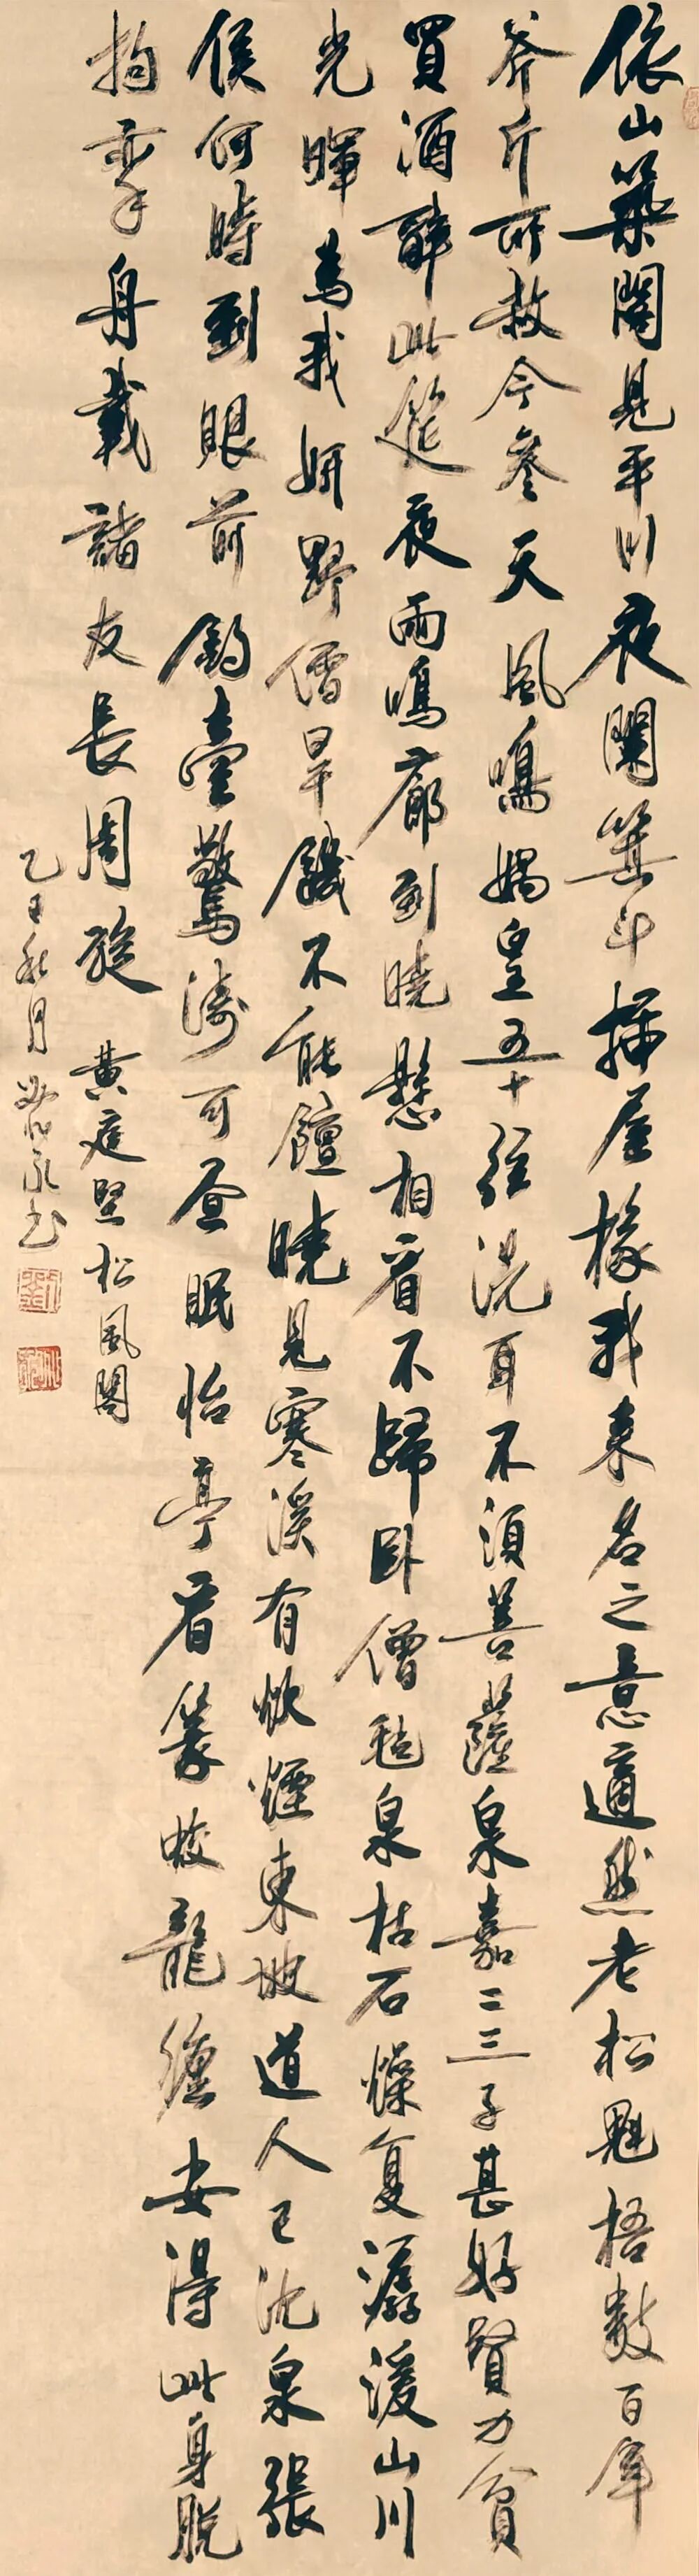 依山築閣見平川夜闌箕斗插屋椽我来名之意適然老松魁梧數百年
斧斤所赦今參天風鳴媧皇五十弦洗耳不須菩薩泉嘉二三子甚好賢力貧
買酒醉此筵夜雨鳴廊到曉懸相看不歸臥僧氈泉枯石燥復潺湲山川
光暉為我妍野僧旱饑不能饘曉見寒溪有炊煙東坡道人已沈泉張
侯何時到眼前釣臺驚濤可晝眠怡亭看篆蛟龍纏安得此身脫
拘攣舟載諸友長周旋 黄庭堅松風閣
乙巳秋月